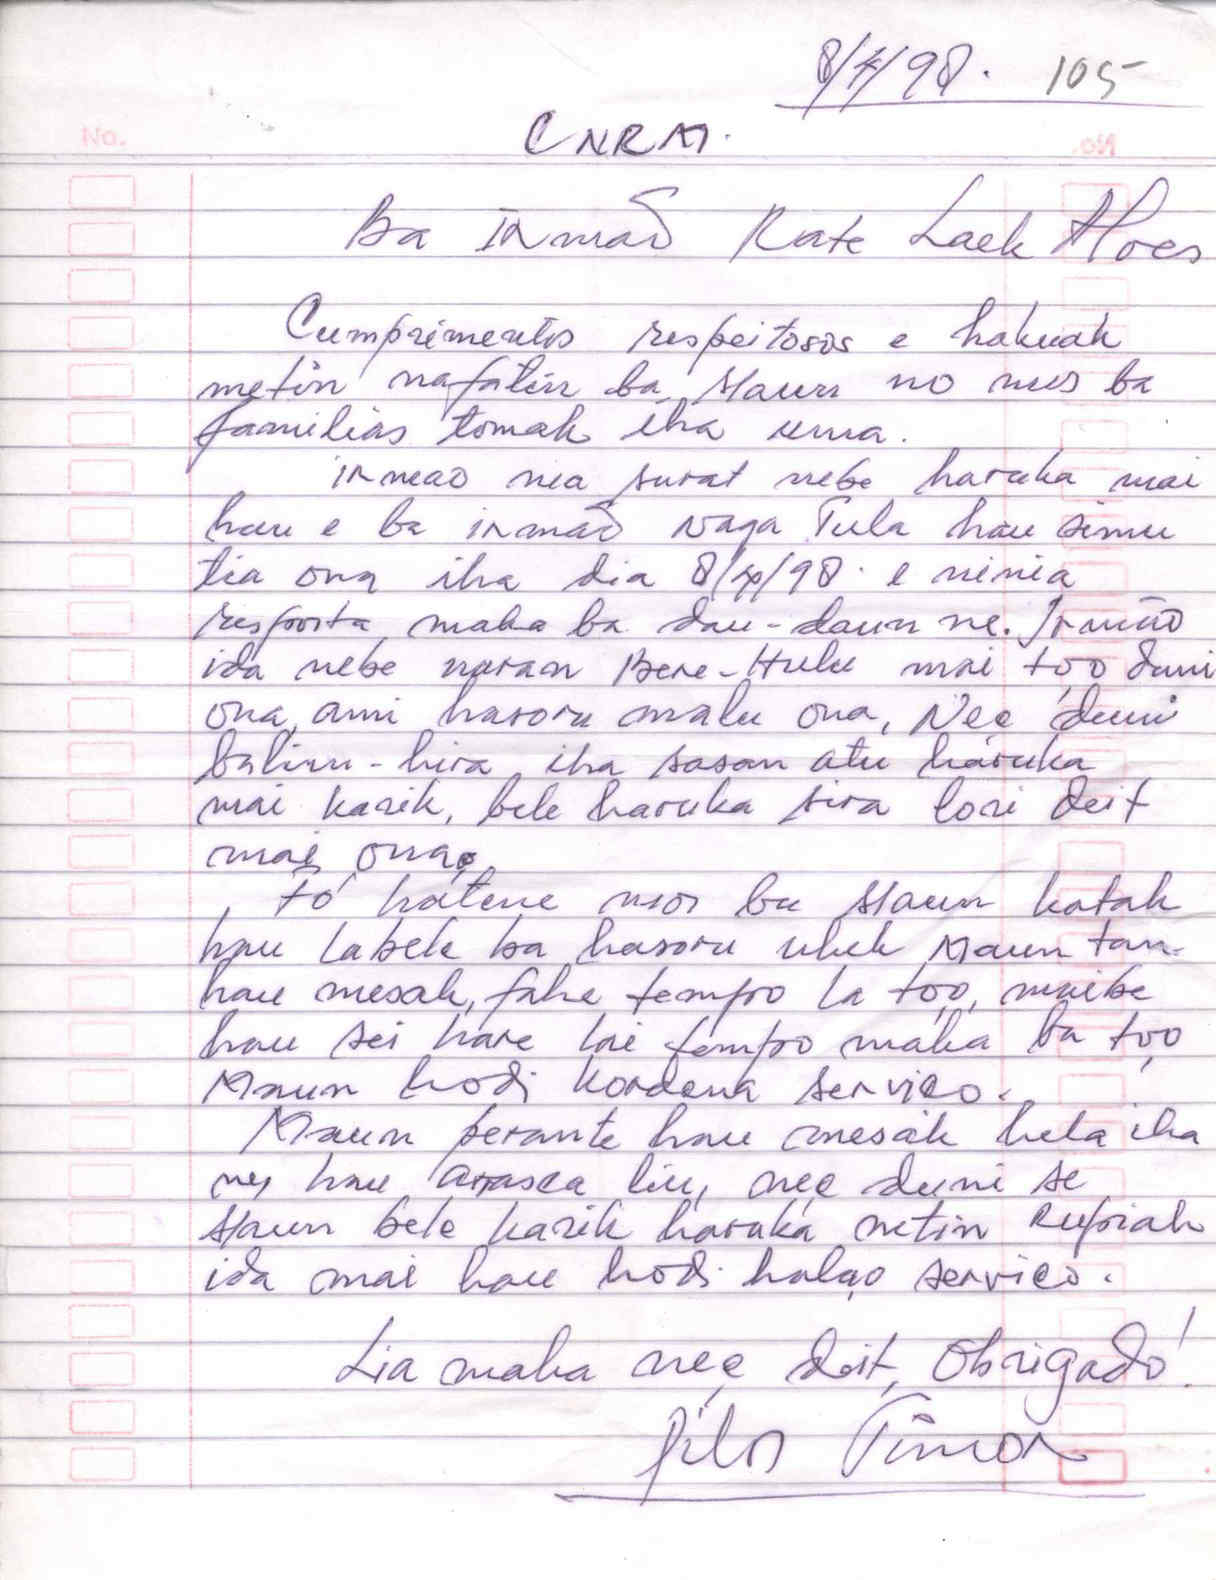 8/4/98. 105
CNRM.
No.
Ba Irmaõ Kate Laek Alves
Cumprimentos respeitosos e hakuak
metin nafatin ba Maun no mos ba
familias tomak iha uma.
Irmao nia surat nebe haruka mai
hau e ba irmaõ Naga Tula hau simu
tia ona iha dia 8/4/98. e ninia
resposta maka ba dau-daun ne. Irmão
ida nebe naran Bere-Hulu mai tóo duni
ona, ami hasoru malu ona, Neé duni
balun-hira iha sasan atu haruka
mai karik, bele haruka sira lori deit
mai ona.
Fó hatene mos ba Maun katak
hau labele ba hasoru uluk Maun tan
hau mesak, fahe tempo la tóo, maibe
hau sei hare lai tempo maka ba tóo
Maun hodi kordena serviço.
Maun perante hau mesak hela iha
ne, hau arasca liu, neé duni se
Maun bele karik haruka netin Rupiah
ida mai hau hodi halao serviço.
Lia maka neé deit, Obrigado!
Timor